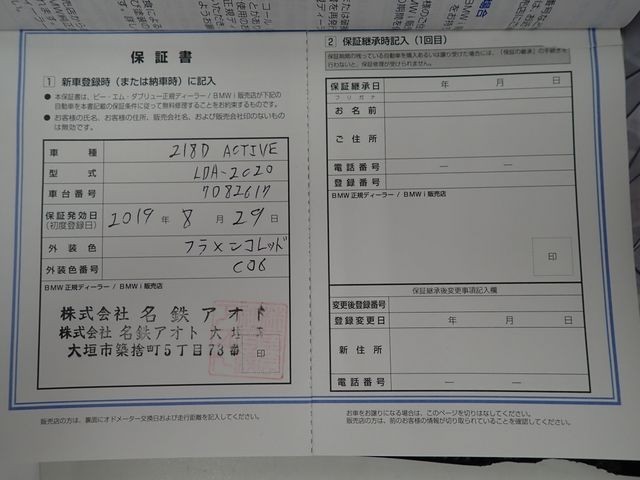 保証書
1 新車登録時（または納車時）に記入
● 本保証書は、ビー・エム・ダブリュー正規ディーラー/BMW i 販売店が下記の
自動車を本書記載の保証条件に従って無料修理することをお約束するものです。
● お客様の氏名、お客様の住所、販売会社名、および販売会社印のないもの
は無効です。
車種 218D ACTIVE
型式 LDA-2C20
車台番号 7082617
保証発効日 2019年 8月 29日
(初度登録日)
外装色 フラメンコレッド
外装色番号 C06
BMW正規ディーラー / BMW i 販売店
株式会社 名鉄アオト
株式会社 名鉄アオト 大垣
大垣市築捨町5丁目73番
印
販売店の方は、裏面にオドメーター交換日および走行距離を記入してください。
2 保証継承時記入（1回目）
保証期間の残っている自動車を購入あるいは譲り受けた場合には、「保証の継承」の手続きを
行わないと、保証修理が受けられません。
保証継承日 年 月 日
フリガナ
お名前
ご住所
電話番号 — —
登録番号
BMW正規ディーラー / BMW i 販売店
印
保証継承後変更事項記入欄
変更後登録番号
登録変更日 年 月 日
新住所
電話番号 — —
お車をお譲りになる場合は、このページを切りはなしてください。
販売店の方は、前のお客様の情報が切り取られていることを確認してください。